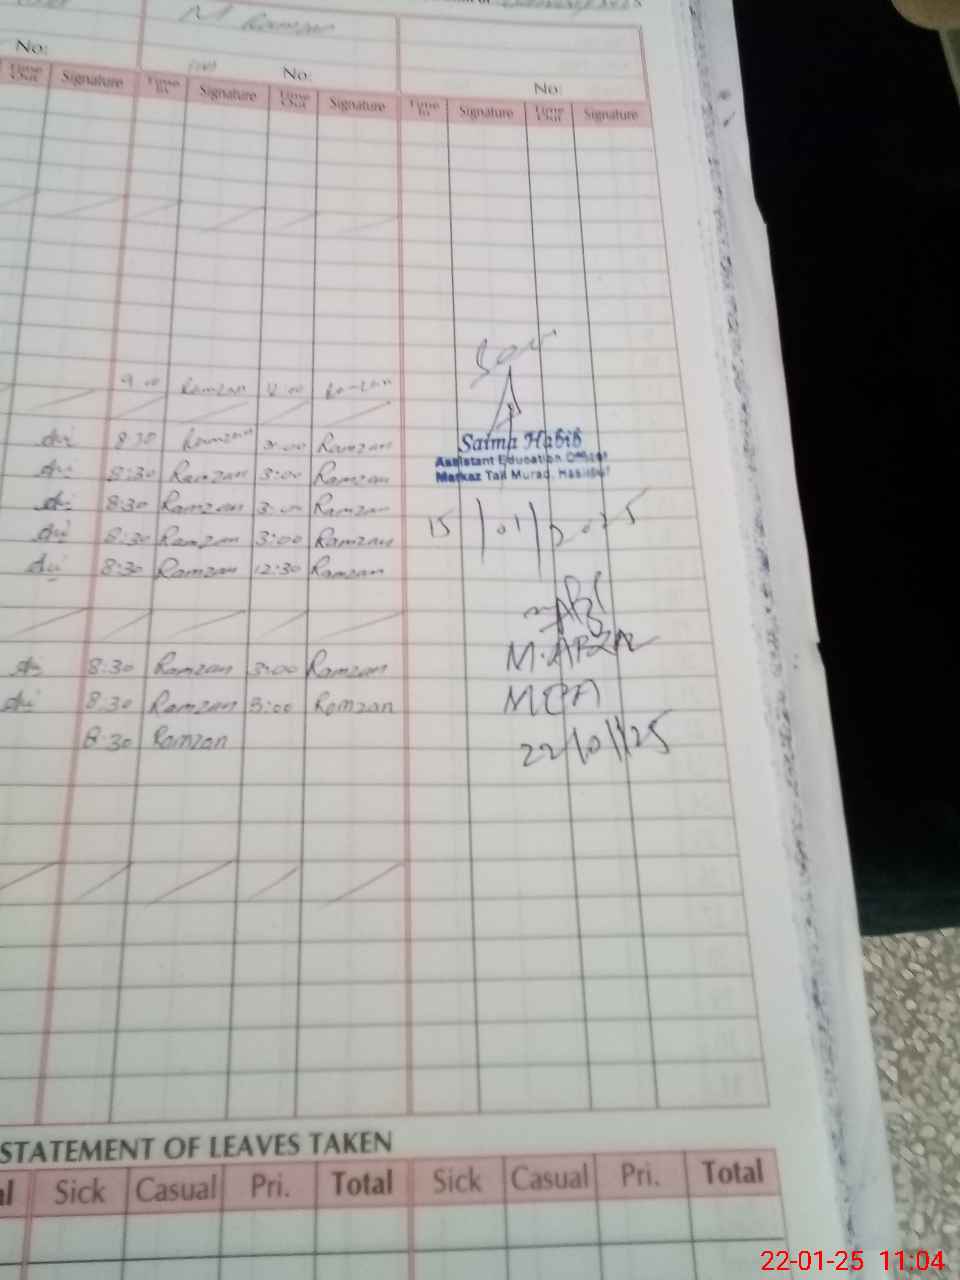 M Ramzan
No: No: No:
Time Out Signature Time In Signature Time Out Signature Time In Signature Time Out Signature
9:00 Ramzan Ramzan
8:30 Ramzan 3:00 Ramzan
8:30 Ramzan 3:00 Ramzan
8:30 Ramzan 3:00 Ramzan
8:30 Ramzan 3:00 Ramzan
8:30 Ramzan 12:30 Ramzan
8:30 Ramzan 3:00 Ramzan
8:30 Ramzan 3:00 Ramzan
8:30 Ramzan
Saima Habib
Assistant Education Officer
Markaz Tail Murad, Hasilpur
15/01/2025
M.ARZAL
MEA
22/01/25
STATEMENT OF LEAVES TAKEN
Sick Casual Pri. Total Sick Casual Pri. Total
22-01-25 11:04